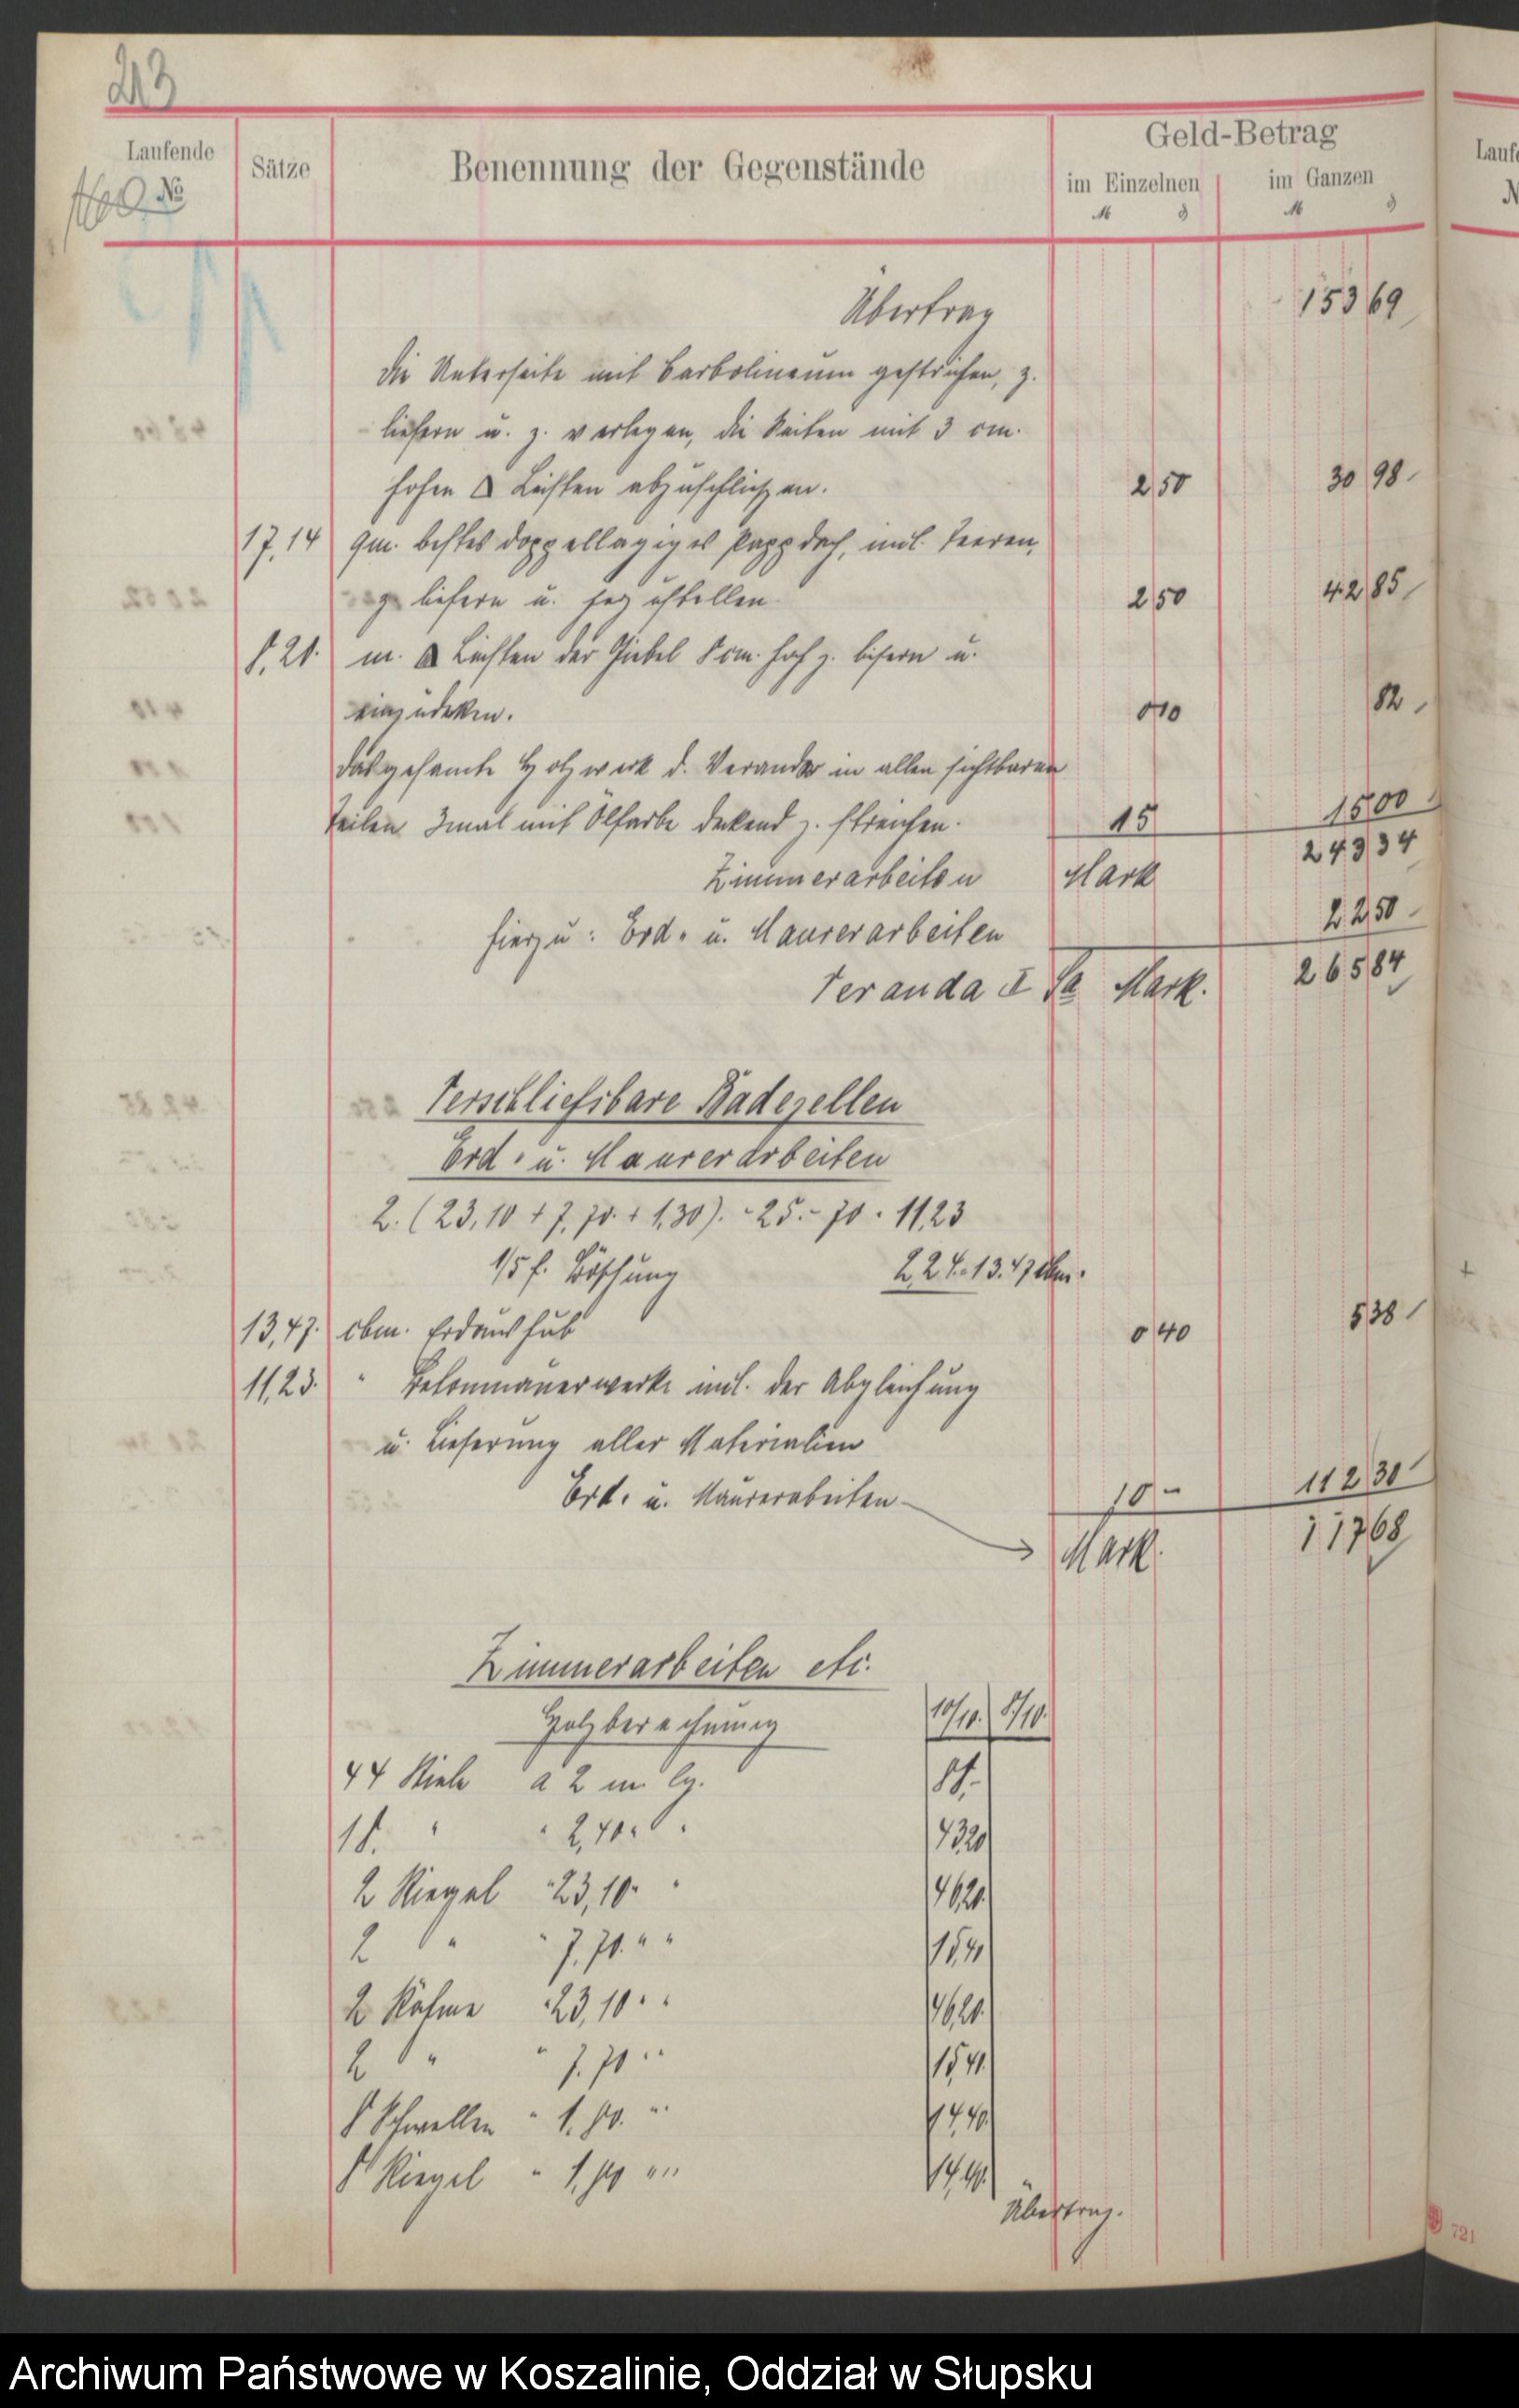 213
Laufende
№
Sätze
Benennung der Gegenstände
Geld-Betrag
im Einzelnen
im Ganzen
M ₰
M ₰
Übertrag 153 69
die Unterseite mit Carbolineum gestrichen, z.
liefern u. z. verlegen, die Seiten mit 3 cm.
hohen Leisten abzuschließen. 2 50 30 98
17,14 qm. bestes doppellagiges Pappdach, incl. Teeren,
z. liefern u. herzustellen. 2 50 42 85
8,21. m. Leisten der Giebel 8 cm. hoch z. liefern u.
einzudecken. 0 10 82
das gesamte Holzwerk d. Veranda in allen sichtbaren
Teilen 3mal mit Ölfarbe deckend z. streichen. 15 15 00
Zimmerarbeiten Mark 243 34
hierzu: Erd- u. Maurerarbeiten 22 50
Veranda I Sa Mark. 265 84
Verschließbare Badezellen
Erd- u. Maurerarbeiten
2. (23,10 + 7,70 + 1,30). 25. 70 = 11,23
1/5 f. Böschung 2,24 = 13,47 cbm.
13,47. cbm. Erdaushub 0 40 5 38
11,23. " Betonmauerwerk incl. der Abgleichung
u. Lieferung aller Materialien
Erd- u. Maurerarbeiten 10 – 112 30
Mark. 117 68
Zimmerarbeiten etc.
Holzberechnung 10/10. 8/10.
44 Stiele a 2 m lg. 88.-
18. " " 2,40 " " 43,20
2 Riegel " 23,10 " " 46,20
2 " " 7,70 " " 15,40
2 Rähme " 23,10 " " 46,20
2 " " 7,70 " " 15,40
8 Schwellen " 1,80 " " 14,40
8 Riegel " 1,80 " " 14,40
Übertrag.
721
Archiwum Państwowe w Koszalinie, Oddział w Słupsku